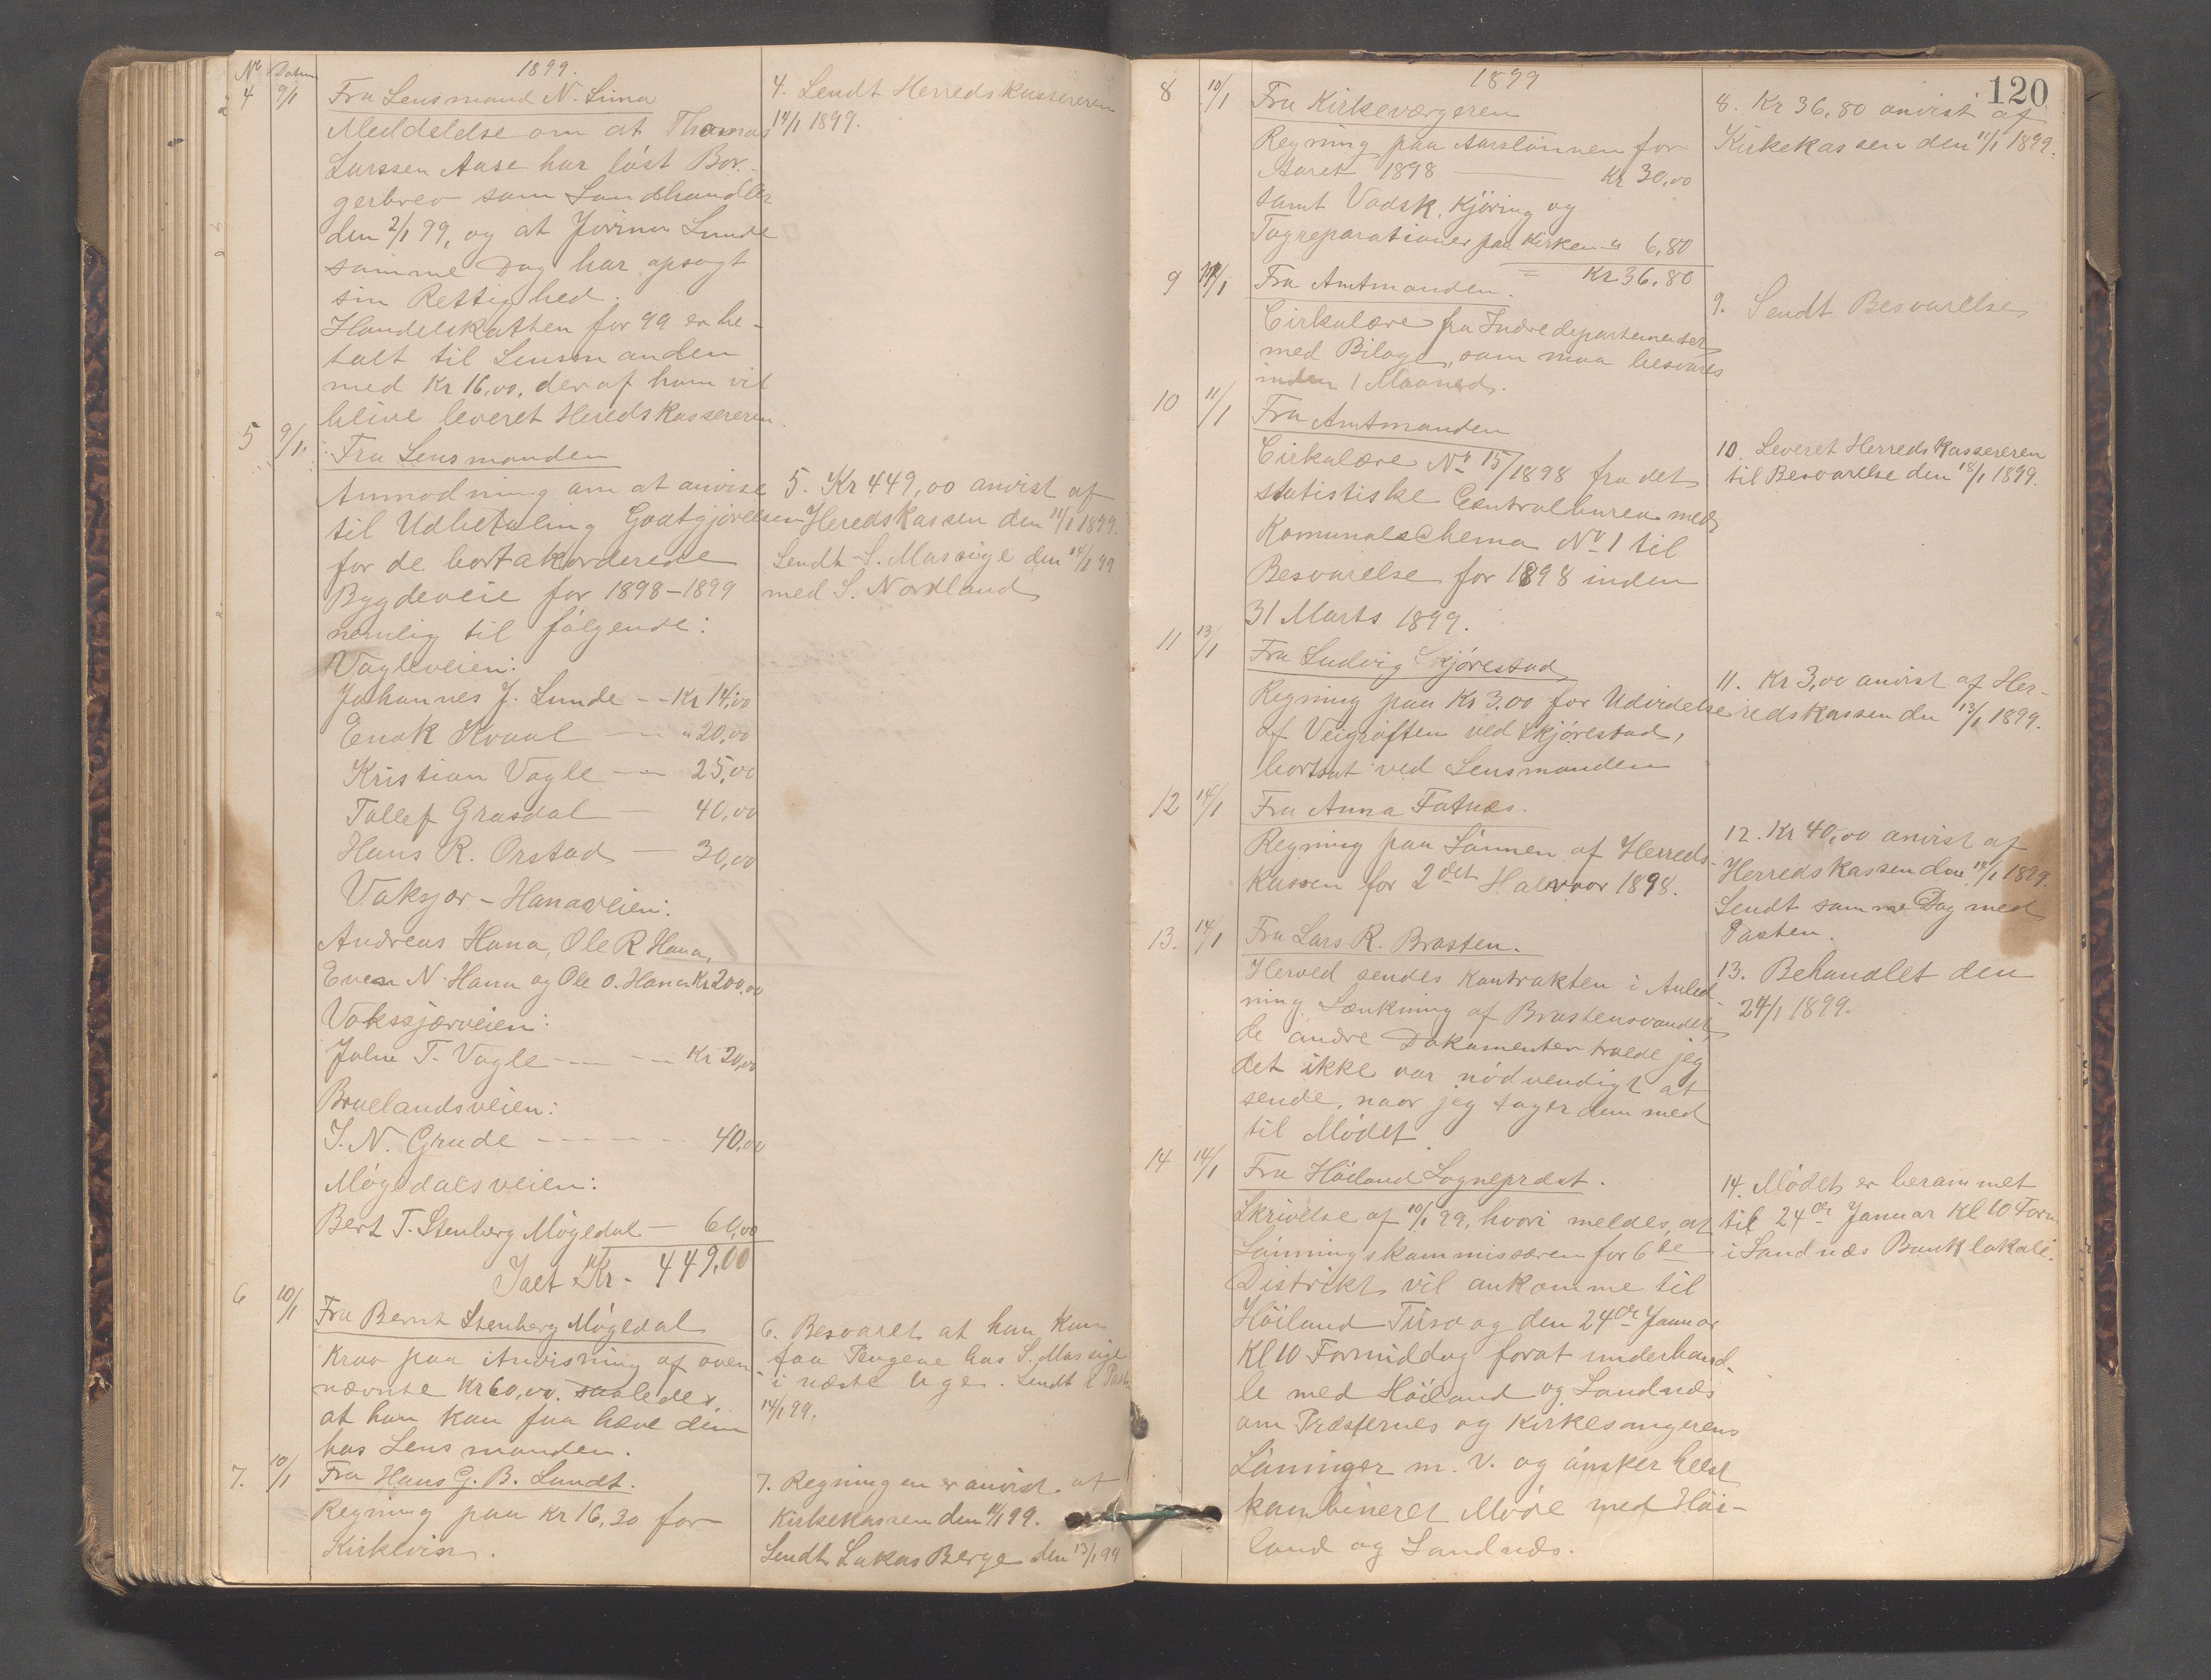 No Datum
1899.
4 9/1
Fra Lensmand N. Lima
Meddelelse om at Thomas
Larssen Aase har löst Bor-
gerbrev som Landhandler
den 2/1 99, og at Jorina Lunde
samme Dag har opsagt
sin Rettighed.
Handelskatten for 99 er be-
talt til Lensmanden
med Kr 16,00, der af ham vil
blive leveret Heredskassereren.
4. Sendt Herredskassereren
14/1 1899.
5 9/1.
Fra Lensmanden
Anmodning om at anvise
til Udbetaling Godtgjörelsen
for de bortakorderede
Bygdeveie for 1898-1899
nemlig til fölgende:
Vagleveien:
Johannes J. Lunde -- Kr 14,00
Enok Kvaal — " 20,00
Kristian Vagle — 25,00
Tollef Grasdal — 40,00
Hans R. Orstad — 30,00
Vaksjær-Hanaveien:
Andreas Hana, Ole R Hana,
Even N. Hana og Ole O. Hana Kr 200,00
Voksjærveien:
John T. Vagle — — Kr 20,00
Bruelandsveien:
I. N. Grude - - - - - 40,00
Mögedalsveien:
Bert T. Stenberg Mögedal — 60,00
Ialt Kr - 449,00
5. Kr 449,00 anvist af
Heredskassen den 11/1 1899.
Sendt S. Massige den 14/1 99
med S. Nordland
6 10/1
Fra Bernt Stenberg Mögedal
Krav paa Anvisning af oven
nævnte Kr 60,00. saaledes,
at han kan faa hæve dem
hos Lensmanden.
6. Besvaret at han kan
faa Pengene hos S. Massige
i næste Uge. Sendt
14/1 99.
7. 10/1
Fra Hans G. B. Sundt.
Regning paa Kr 16,30 for
Kirkevin.
7. Regningen er anvist af
Kirkekassen den 11/1 99.
Sendt Lukas Berge den 13/1 99
1899
120
8 10/1
Fra Kirkeværgeren
Regning paa Aarslönnen for
Aaret 1898 — Kr 30,00
samt Vadsk, Kjöring og
Tagreparationer paa Kirken " 6,80
= Kr 36,80
8. Kr 36,80 anvist af
Kirkekassen den 11/1 1899.
9 11/1
Fra Amtmanden.
Cirkulære fra Indredepartementet
med Bilage, som maa besvares
inden 1 Maaned.
9. Sendt Besvarelse
10 11/1
Fra Amtmanden
Cirkulære No 15/1898 fra det
statistiske Centralbureau med
Komunaleschema No 1 til
Besvarelse for 1898 inden
31 Marts 1899.
10. Leveret Herredskassereren
til Besvarelse den 18/1 1899.
11 13/1
Fra Ludvig Skjörestad
Regning paa Kr 3,00 for Udvidelse
af Veigröften ved Skjörestad,
bortsat ved Lensmanden
11. Kr 3,00 anvist af Her-
redskassen den 13/1 1899.
12 14/1
Fra Anna Fatnæs.
Regning paa Lönnen af Herreds-
kassen for 2det Halvaar 1898.
12. Kr 40,00 anvist af
Herredskassen den 14/1 1899.
Sendt samme Dag med
Posten.
13. 14/1
Fra Lars R. Brasten.
Herved sendes Kontrakten i Anled-
ning Sænkning af Brastensvandet,
de andre Dokumenter troede jeg
det ikke var nödvendigt at
sende, naar jeg tager dem med
til Mödet.
13. Behandlet den
24/1 1899.
14 14/1
Fra Höiland Sogneprest.
Skrivelse af 10/1 99, hvori meldes, at
Lönningskommissæren for 6te
Distrikt vil ankomme til
Höiland Tirsdag den 24de Januar
Kl 10 Formiddag forat underhand-
le med Höiland og Sandnæs
om Præsternes og Kirkesangerens
Lönninger m. v. og önsker helst
kombineret Möde med Höi-
land og Sandnæs.
14. Mödet er berammet
til 24de Januar Kl 10 Form
i Sandnæs Banklokale.